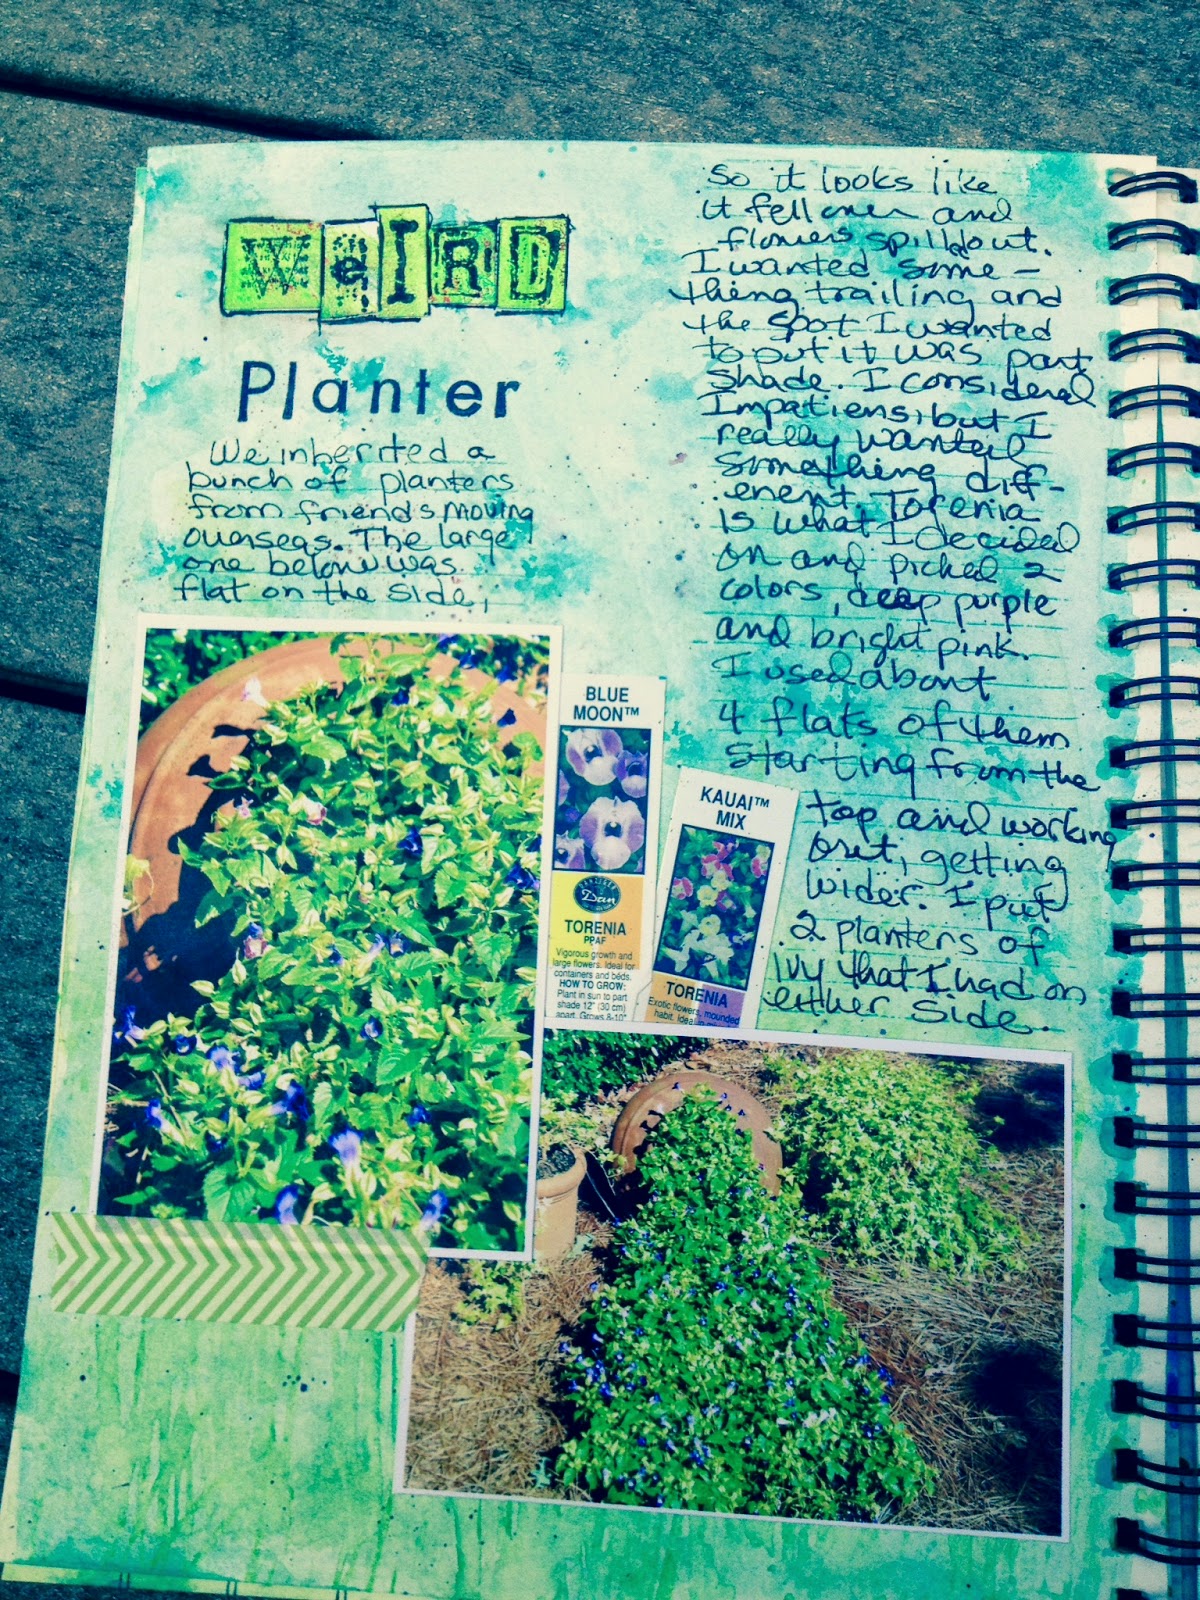 WeIRD
Planter
We inherited a
bunch of planters
from friends moving
overseas. The large
one below was
flat on the side,
So it looks like
it fell over and
flowers spilled out.
I wanted some-
thing trailing and
the spot I wanted
to put it was part
shade. I considered
Impatiens, but I
really wanted
something diff-
erent. Torenia
is what I decided
on and picked 2
colors, deep purple
and bright pink.
I used about
4 flats of them
starting from the
top and working
out, getting
wider. I put
2 planters of
ivy that I had on
either side.
BLUE
MOON™
Dan
TORENIA
PPAF
Vigorous growth and
large flowers. Ideal for
containers and beds.
HOW TO GROW:
Plant in sun to part
shade 12" (30 cm)
apart. Grows 8-10"
KAUAI™
MIX
TORENIA
Exotic flowers, mounded
habit. Ideal in